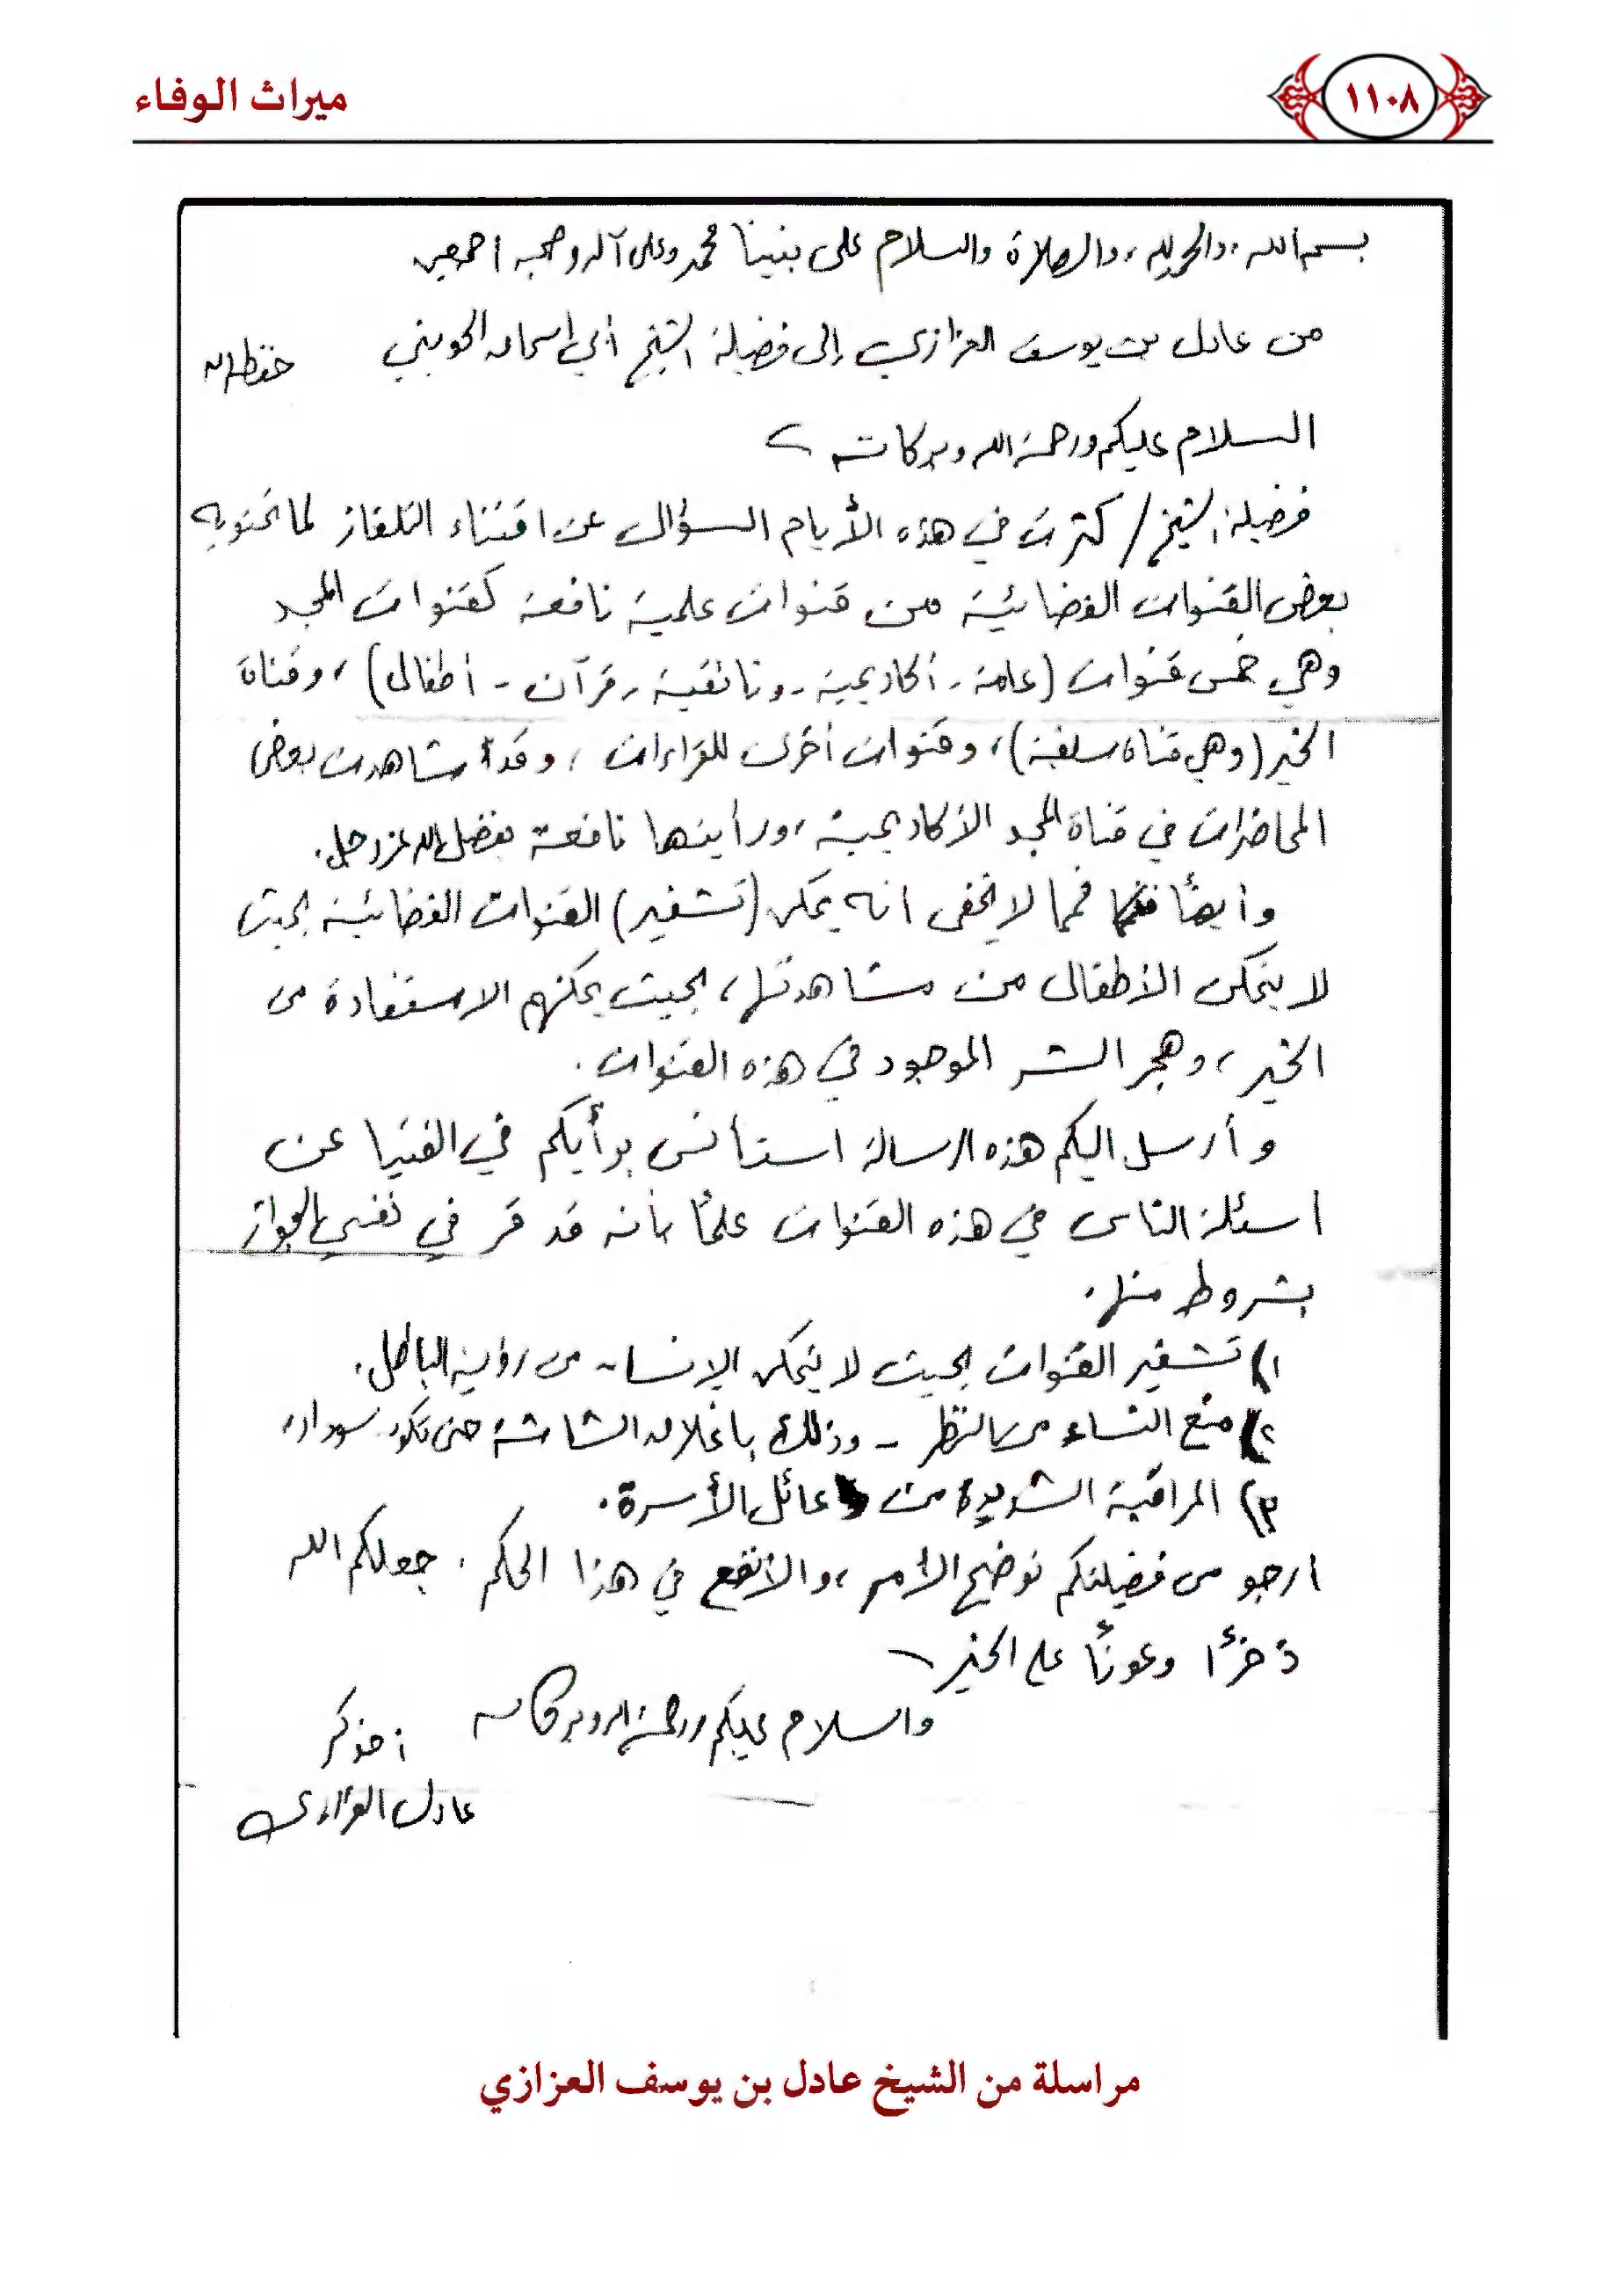 ١١٠٨
ميراث الوفاء
بسم الله، والحمد لله، والصلاة والسلام على نبينا محمد وعلى آله وصحبه أجمعين
من عادل بن يوسف العزازي إلى فضيلة الشيخ أبي إسحاق الحويني حفظه الله
السلام عليكم ورحمة الله وبركاته
فضيلة الشيخ / كثرت في هذه الأيام السؤال عن اقتناء التلفاز لما تحتويه
بعض القنوات الفضائية من قنوات علمية نافعة كقنوات المجد
وهي خمس قنوات (عامة - أكاديمية - وثائقية - قرآن - أطفال)، وقناة
الخير (وهي قناة سلفية)، وقنوات أخرى للقراءات، وقد شاهدت بعض
المحاضرات في قناة المجد الأكاديمية، ورأيتها نافعة بفضل الله عز وجل.
وأيضًا فمما لا يخفى انه يمكن (تشفير) القنوات الفضائية بحيث
لا يتمكن الأطفال من مشاهدتها، بحيث يمكنهم الاستفادة من
الخير، وهجر الشر الموجود في هذه القنوات.
وأرسل اليكم هذه الرسالة استأنس برأيكم في الفتيا عن
اسئلة الناس في هذه القنوات علمًا بأنه قد قر في نفسي الجواز
بشروط منها.
١) تشفير القنوات بحيث لا يتمكن الإنسان من رؤية الباطل.
٢) منع النساء من النظر - وذلك بإغلاق الشاشة حتى تكون سوداء.
٣) المراقبة الشديدة من عائل الأسرة.
ارجو من فضيلتكم توضيح الأمر، والأنفع في هذا الحكم. جعلكم الله
ذخرًا وعونًا على الخير
والسلام عليكم ورحمة الله وبركاته
أخوكم
عادل العزازي
مراسلة من الشيخ عادل بن يوسف العزازي